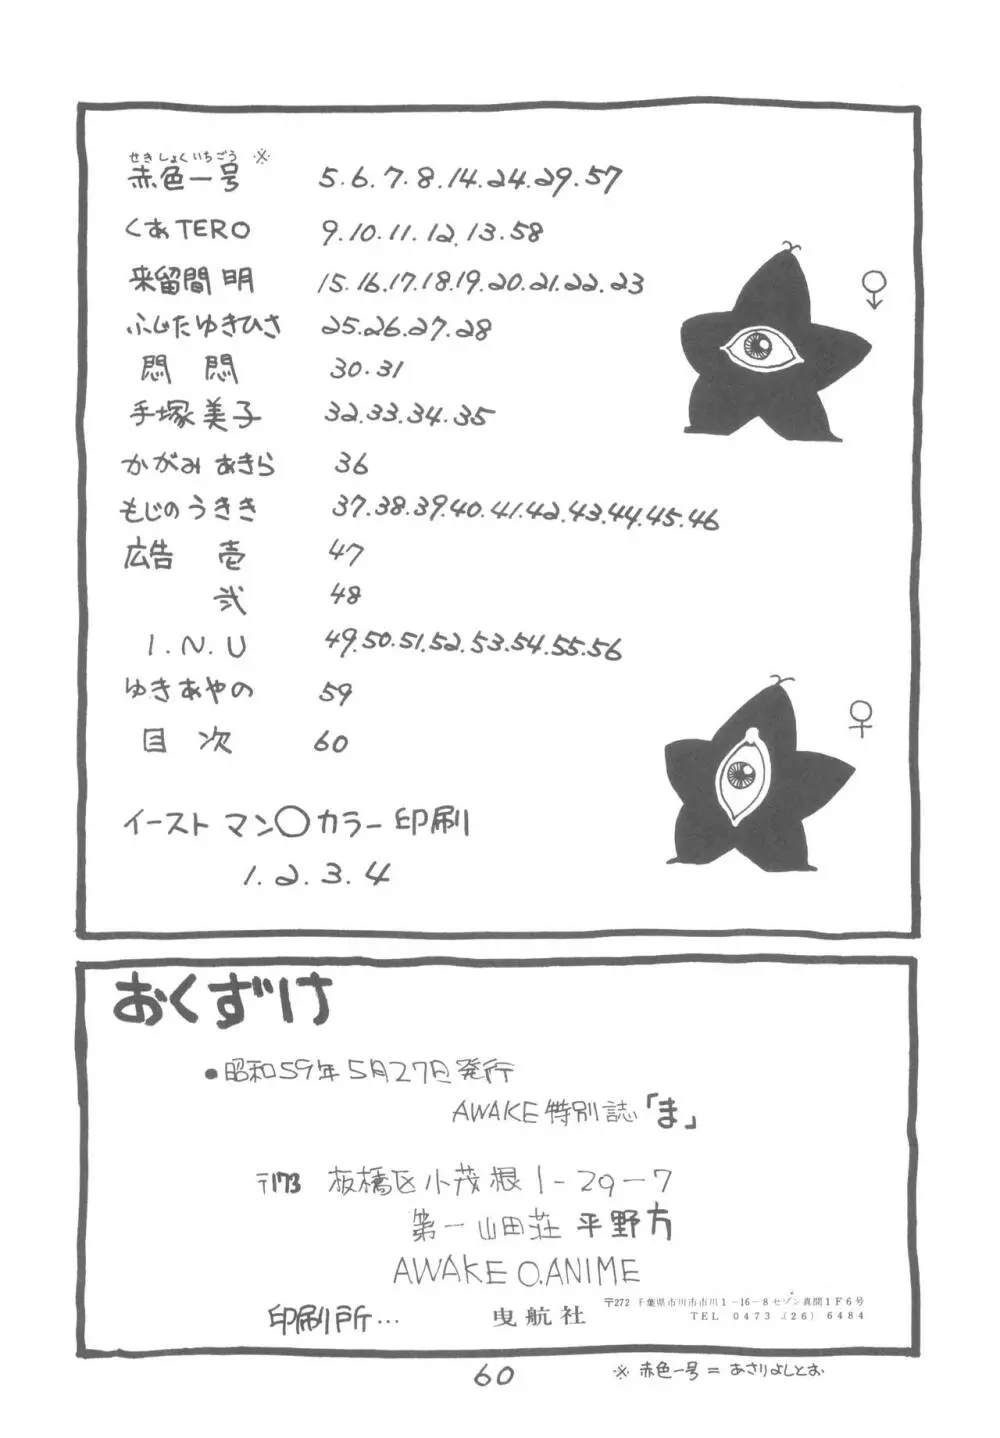 せきしょくいちごう
赤色一号 ※ 5.6.7.8.14.24.29.57
くあTERO 9.10.11.12.13.58
来留間 明 15.16.17.18.19.20.21.22.23
ふじたゆきひさ 25.26.27.28
悶 悶 30.31
手塚美子 32.33.34.35
かがみあきら 36
もじのうきき 37.38.39.40.41.42.43.44.45.46
広告 壱 47
弐 48
I.N.U 49.50.51.52.53.54.55.56
ゆきあやの 59
目次 60
♂
♀
イーストマン〇カラー印刷
1.2.3.4
おくずけ
●昭和59年5月27日発行
AWAKE特別誌「ま」
〒173 板橋区小茂根1-29-7
第一山田荘 平野方
AWAKE O.ANIME
印刷所… 曳航社
〒272 千葉県市川市市川1-16-8セゾン真間1F6号
TEL 0473 (26) 6484
60
※ 赤色一号 = あさりよしとお